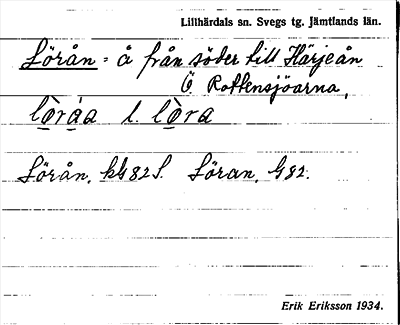 Lillhärdals sn. Svegs tg. Jämtlands län.
Lörån = å från söder till Härjeån
Ö Rottensjöarna,
lòráa l. lòra
Lörån, kG82S. Löran, G82.
Erik Eriksson 1934.